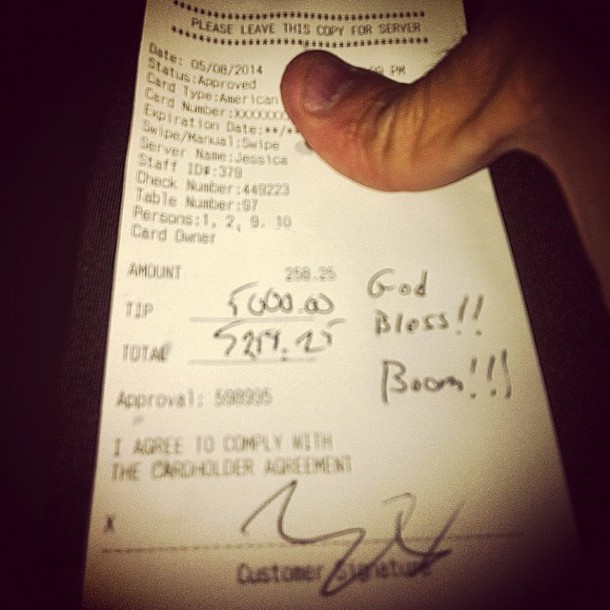 ********************************
PLEASE LEAVE THIS COPY FOR SERVER
********************************
Date: 05/08/2014 PM
Status:Approved
Card Type:American
Card Number:XXXXXXX
Expiration Date:**/*
Swipe/Manual:Swipe
Server Name:Jessica
Staff ID#:379
Check Number:449223
Table Number:97
Persons:1, 2, 9, 10
Card Owner
AMOUNT 258.25
TIP 5000.00
TOTAL 5258.25
God
Bless!!
Boom!!!
Approval: 598995
I AGREE TO COMPLY WITH
THE CARDHOLDER AGREEMENT
X
Customer Signature